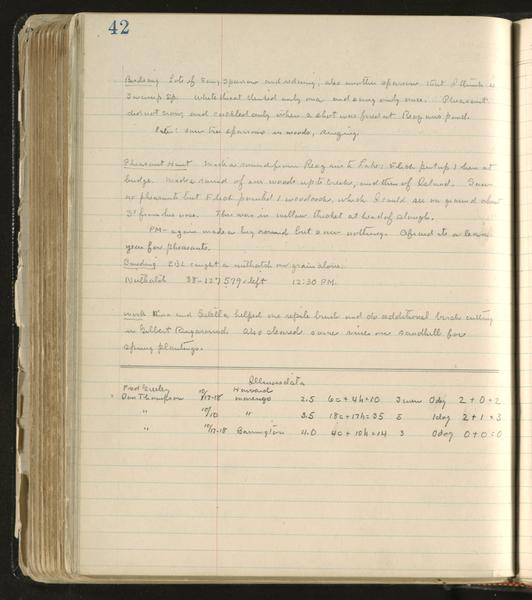 42
Birdsong Lots of song sparrow and redwing, also another sparrow that I think is
Swamp Sp. Whitethroat thrilled only once and song only once. Pheasant
did not crow, and cackled only when a shot was fired at Reagan's pond.
Late: saw tree sparrows in woods, singing.
Pheasant Hunt Made a round from Reagan's to Lake; Flick put up 1 hen at
bridge. Made a round of our woods up to creek, and then of Island. Saw
no pheasants but Flick pointed 1 woodcock, which I could see on ground about
3' from his nose. This was in willow thicket at head of slough.
PM - again made a big round but saw nothing. Afraid its a lean
year for pheasants.
Banding caught a nuthatch on grain alone.
Nuthatch 38-127579 left 12:30 PM.
Work Nina and Estella helped me repile brush and do additional birch cutting
in Gilbert Ringaround. Also cleared some vines on sandhill for
spring plantings.
Illinois data
Fred Greeley Harvard
Don Thompson 10/17-18 marengo 2.5 6c + 4h = 10 3 men 0 dog 2 + 0 = 2
" 10/10 " 3.5 18c + 17h = 35 5 1 dog 2 + 1 = 3
" 10/17-18 Barrington 4.0 4c + 10h = 14 3 0 dog 0 + 0 = 0